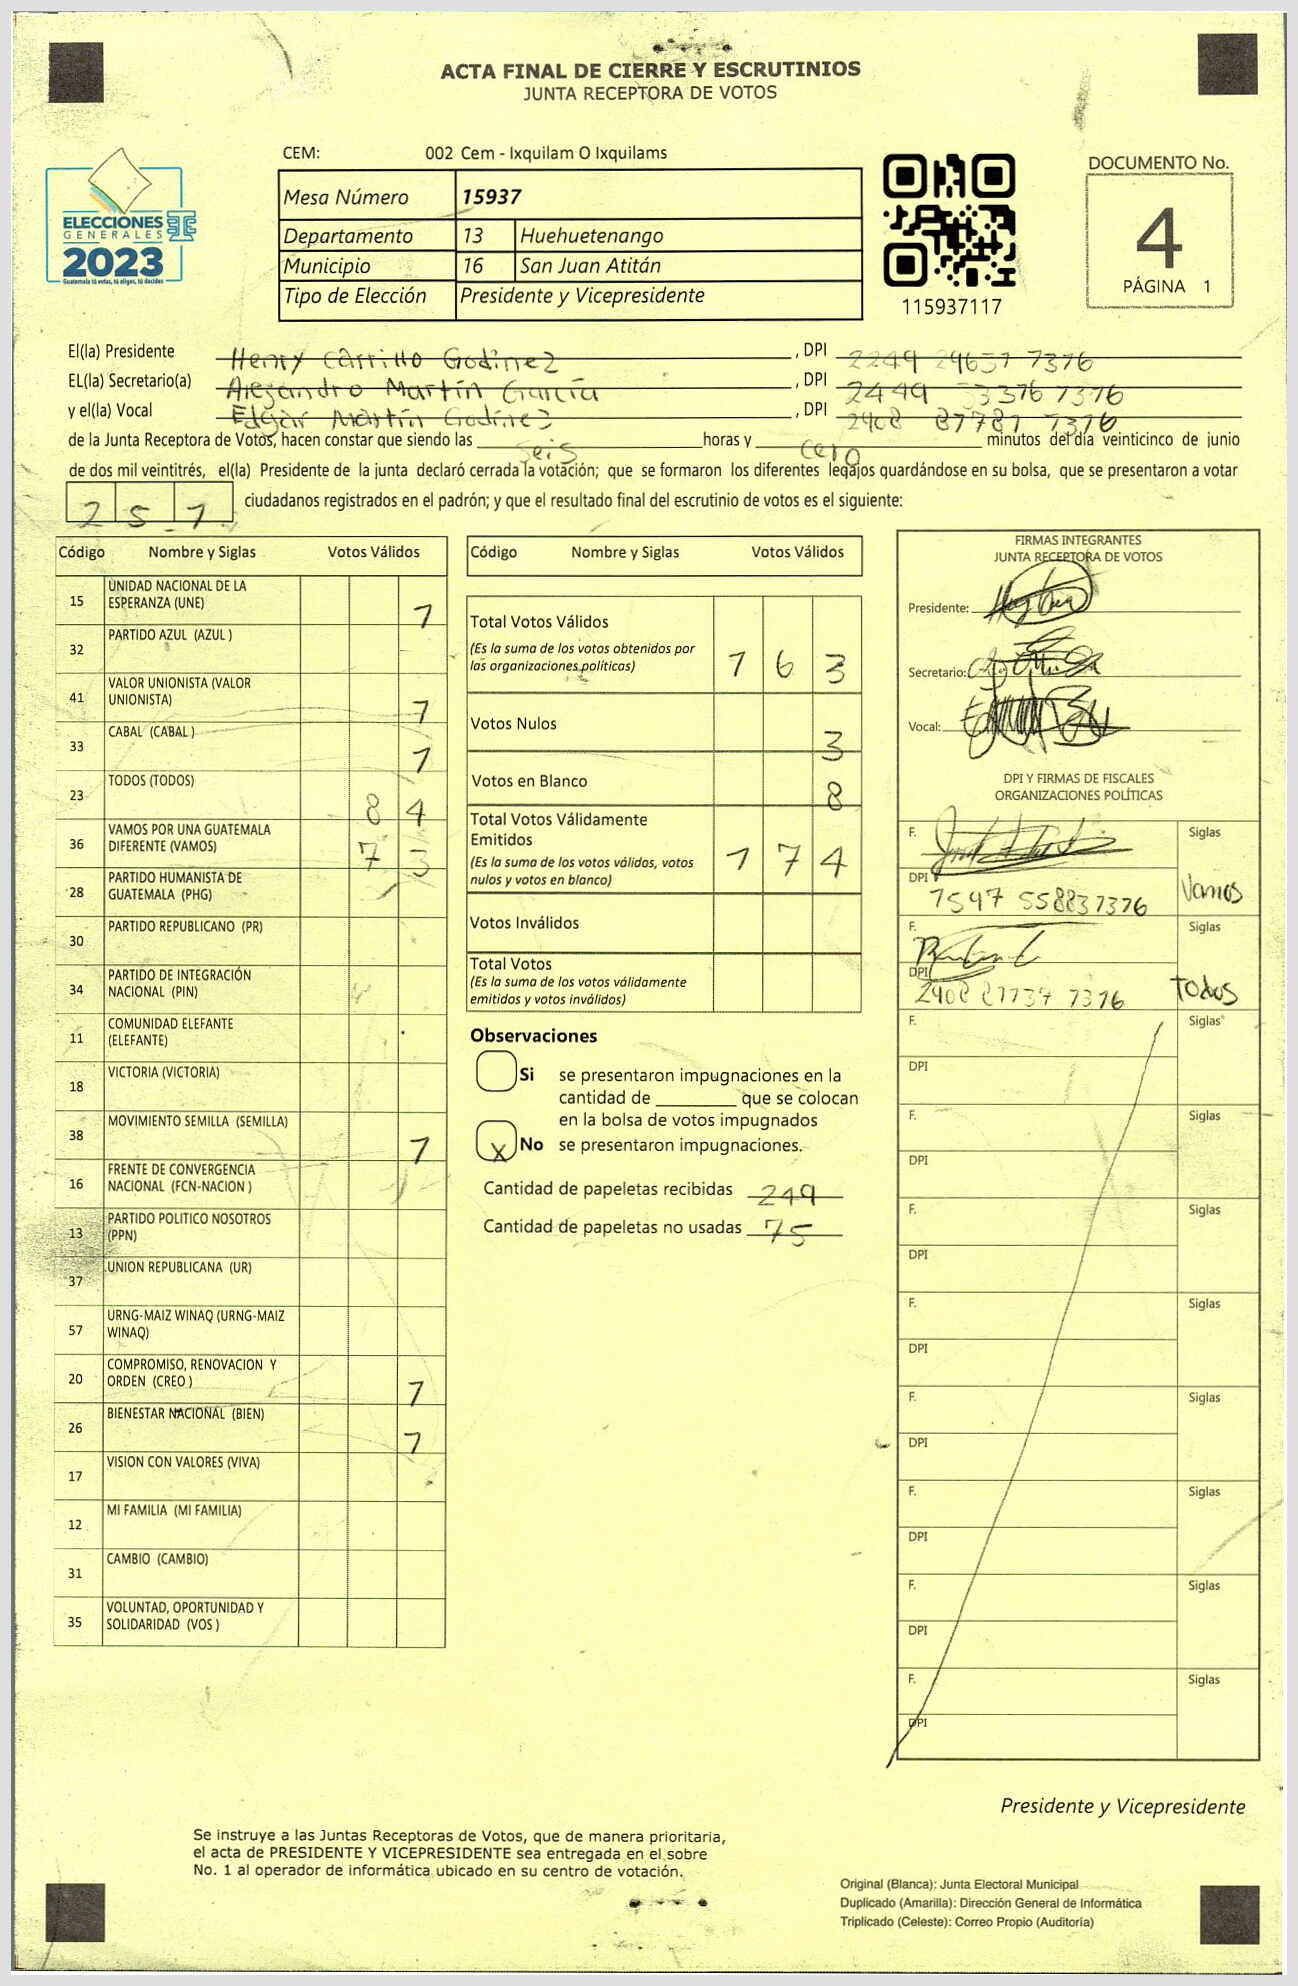 ACTA FINAL DE CIERRE Y ESCRUTINIOS
JUNTA RECEPTORA DE VOTOS
CEM: 002 Cem - Ixquilam O Ixquilams
ELECCIONES
GENERALES
2023
Guatemala tú votas, tú eliges, tú decides
Mesa Número 15937
Departamento 13 Huehuetenango
Municipio 16 San Juan Atitán
Tipo de Elección Presidente y Vicepresidente
115937117
DOCUMENTO No.
4
PÁGINA 1
El(la) Presidente Henry Carrillo Godínez, DPI 2249 29637 7316
EL(la) Secretario(a) Alejandro Martín García, DPI 2449 33376 1316
y el(la) Vocal Edgar Martín Godínez, DPI 2908 87781 1316
de la Junta Receptora de Votos, hacen constar que siendo las seis horas y cero minutos del día veinticinco de junio
de dos mil veintitrés, el(la) Presidente de la junta declaró cerrada la votación; que se formaron los diferentes legajos guardándose en su bolsa, que se presentaron a votar
ciudadanos registrados en el padrón; y que el resultado final del escrutinio de votos es el siguiente:
Código Nombre y Siglas Votos Válidos
15 UNIDAD NACIONAL DE LA
ESPERANZA (UNE) 1
32 PARTIDO AZUL (AZUL )
41 VALOR UNIONISTA (VALOR
UNIONISTA) 1
33 CABAL (CABAL ) 1
23 TODOS (TODOS) 84
36 VAMOS POR UNA GUATEMALA
DIFERENTE (VAMOS) 73
28 PARTIDO HUMANISTA DE
GUATEMALA (PHG)
30 PARTIDO REPUBLICANO (PR)
34 PARTIDO DE INTEGRACIÓN
NACIONAL (PIN)
11 COMUNIDAD ELEFANTE
(ELEFANTE)
18 VICTORIA (VICTORIA)
38 MOVIMIENTO SEMILLA (SEMILLA) 1
16 FRENTE DE CONVERGENCIA
NACIONAL (FCN-NACION )
13 PARTIDO POLITICO NOSOTROS
(PPN)
37 UNION REPUBLICANA (UR)
57 URNG-MAIZ WINAQ (URNG-MAIZ
WINAQ)
20 COMPROMISO, RENOVACION Y
ORDEN (CREO ) 1
26 BIENESTAR NACIONAL (BIEN) 1
17 VISION CON VALORES (VIVA)
12 MI FAMILIA (MI FAMILIA)
31 CAMBIO (CAMBIO)
35 VOLUNTAD, OPORTUNIDAD Y
SOLIDARIDAD (VOS )
Código Nombre y Siglas Votos Válidos
Total Votos Válidos
(Es la suma de los votos obtenidos por
las organizaciones políticas) 163
Votos Nulos 3
Votos en Blanco 8
Total Votos Válidamente
Emitidos
(Es la suma de los votos válidos, votos
nulos y votos en blanco) 174
Votos Inválidos
Total Votos
(Es la suma de los votos válidamente
emitidos y votos inválidos)
Observaciones
Si se presentaron impugnaciones en la
cantidad de ________ que se colocan
en la bolsa de votos impugnados
X No se presentaron impugnaciones.
Cantidad de papeletas recibidas 249
Cantidad de papeletas no usadas 75
FIRMAS INTEGRANTES
JUNTA RECEPTORA DE VOTOS
Presidente:
Secretario:
Vocal:
DPI Y FIRMAS DE FISCALES
ORGANIZACIONES POLÍTICAS
F. Siglas
DPI Vamos
F. Siglas
DPI Todos
F. Siglas
DPI
F. Siglas
DPI
F. Siglas
DPI
F. Siglas
DPI
F. Siglas
DPI
F. Siglas
DPI
F. Siglas
DPI
F. Siglas
DPI
Presidente y Vicepresidente
Se instruye a las Juntas Receptoras de Votos, que de manera prioritaria,
el acta de PRESIDENTE Y VICEPRESIDENTE sea entregada en el sobre
No. 1 al operador de informática ubicado en su centro de votación.
Original (Blanca): Junta Electoral Municipal
Duplicado (Amarilla): Dirección General de Informática
Triplicado (Celeste): Correo Propio (Auditoría)